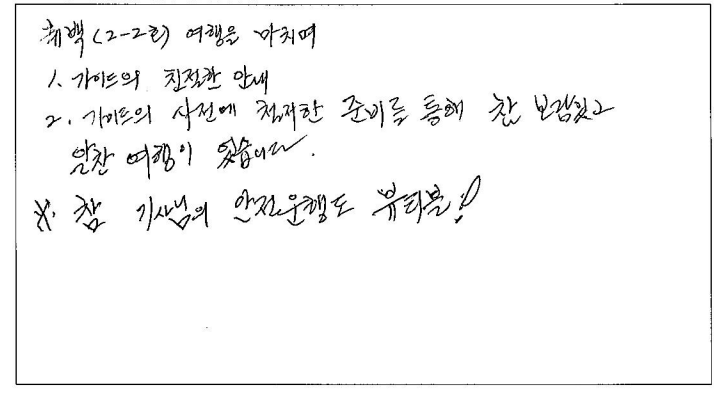 태백(2-2호) 여행을 마치며
1. 가이드의 친절한 안내
2. 가이드의 사전에 철저한 준비를 통해 참 보람있고
알찬 여행이 됬습니다.
※. 참 기사님의 안전운행도 뷰티풀!